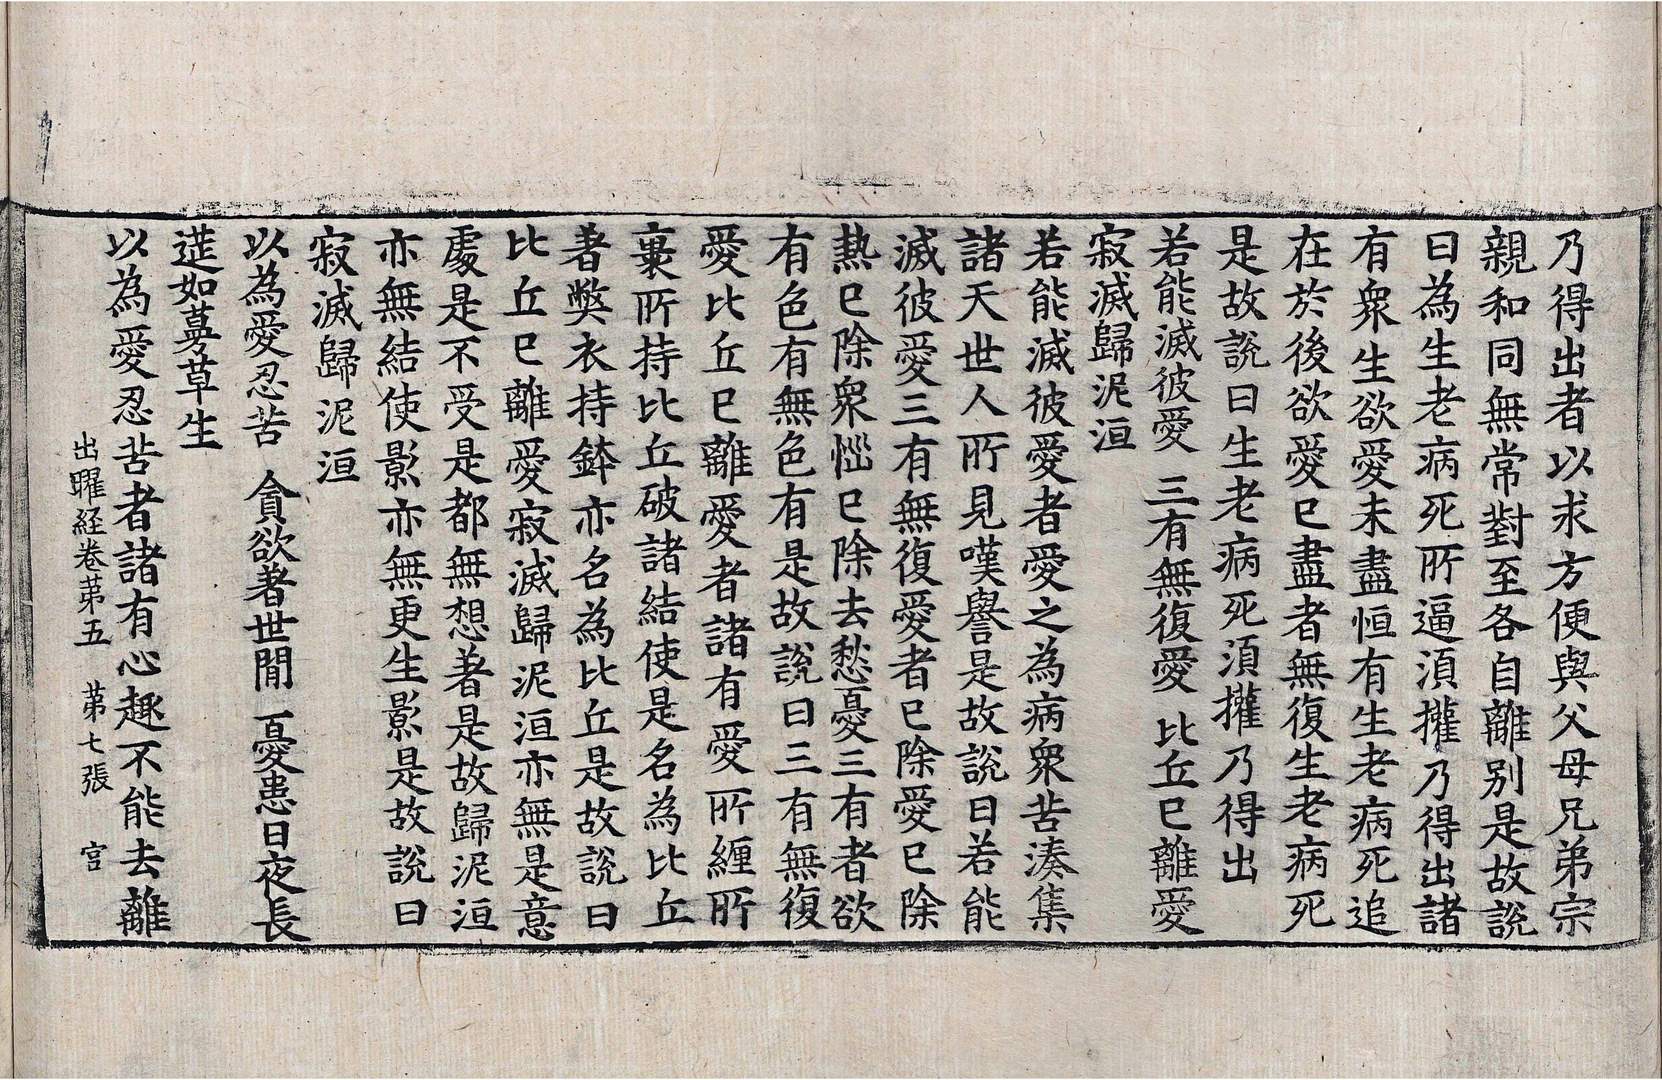 乃得出者以求方便與父母兄弟宗
親和同無常對至各自離別是故說
曰為生老病死所逼須㩲乃得出諸
有衆生欲愛未盡恒有生老病死追
在於後欲愛已盡者無復生老病死
是故說曰生老病死須㩲乃得出
若能滅彼愛 三有無復愛 比丘已離愛
寂滅歸泥洹
若能滅彼愛者愛之為病衆苦湊集
諸天世人所見嘆譽是故說曰若能
滅彼愛三有無復愛者已除愛已除
熱已除衆惱已除去愁憂三有者欲
有色有無色有是故說曰三有無復
愛比丘已離愛者諸有愛所纏所
裹所持比丘破諸結使是名為比丘
著弊衣持鉢亦名為比丘是故說曰
比丘已離愛寂滅歸泥洹亦無是意
處是不受是都無想著是故歸泥洹
亦無結使影亦無更生影是故說曰
寂滅歸泥洹
以為愛忍苦 貪欲著世間 憂患日夜長
莚如蔓草生
以為愛忍苦者諸有心趣不能去離
出曜経卷苐五 苐七張 宫